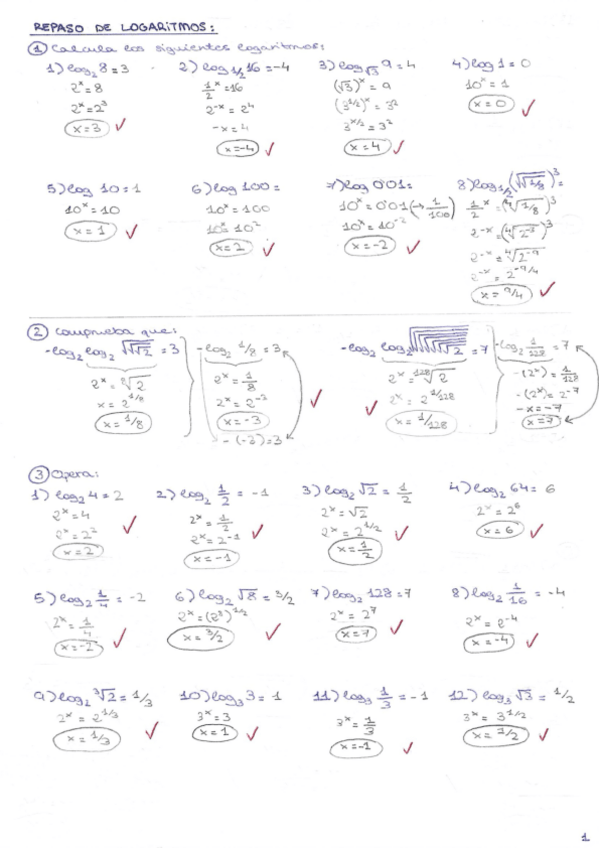 REPASO DE LOGARITMOS:
① Calcula los siguientes logaritmos:
1) log₂ 8 = 3
2ˣ = 8
2ˣ = 2³
x = 3
2) log₁/₂ 16 = -4
1/2ˣ = 16
2⁻ˣ = 2⁴
-x = 4
x = -4
3) log√3 9 = 4
(√3)ˣ = 9
(3^1/2)ˣ = 3²
3^x/2 = 3²
x = 4
4) log 1 = 0
10ˣ = 1
x = 0
5) log 10 = 1
10ˣ = 10
x = 1
6) log 100 =
10ˣ = 100
10ˣ = 10²
x = 2
7) log 0'01 =
10ˣ = 0'01 (→ 1/100)
10ˣ = 10⁻²
x = -2
8) log₁/₂ (√√1/8)³ =
1/2ˣ = (⁴√1/8)³
2⁻ˣ = (⁴√2⁻³)³
2⁻ˣ = ⁴√2⁻⁹
2⁻ˣ = 2^-9/4
x = 9/4
② Comprueba que:
-log₂ log₂ √√√2 = 3
2ˣ = ⁸√2
x = 2^1/8
x = 1/8
-log₂ 1/8 = 3
2ˣ = 1/8
2ˣ = 2⁻³
x = -3
-(-3) = 3
-log₂ log₂ √√√√√√√2 = 7
2ˣ = ¹²⁸√2
2ˣ = 2^1/128
x = 1/128
-log₂ 1/128 = 7
-(2ˣ) = 1/128
-(2ˣ) = 2⁻⁷
-x = -7
x = 7
③ Opera:
1) log₂ 4 = 2
2ˣ = 4
2ˣ = 2²
x = 2
2) log₂ 1/2 = -1
2ˣ = 1/2
2ˣ = 2⁻¹
x = -1
3) log₂ √2 = 1/2
2ˣ = √2
2ˣ = 2^1/2
x = 1/2
4) log₂ 64 = 6
2ˣ = 2⁶
x = 6
5) log₂ 1/4 = -2
2ˣ = 1/4
x = -2
6) log₂ √8 = 3/2
2ˣ = (2³)^1/2
x = 3/2
7) log₂ 128 = 7
2ˣ = 2⁷
x = 7
8) log₂ 1/16 = -4
2ˣ = 2⁻⁴
x = -4
9) log₂ ³√2 = 1/3
2ˣ = 2^1/3
x = 1/3
10) log₃ 3 = 1
3ˣ = 3
x = 1
11) log₃ 1/3 = -1
3ˣ = 1/3
x = -1
12) log₃ √3 = 1/2
3ˣ = 3^1/2
x = 1/2
1